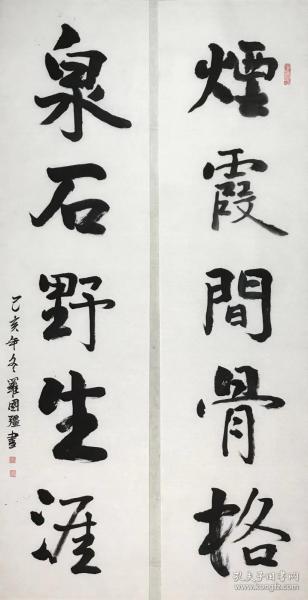 煙霞間骨格
泉石野生涯
乙亥年冬羅國強書
孔夫子旧书网